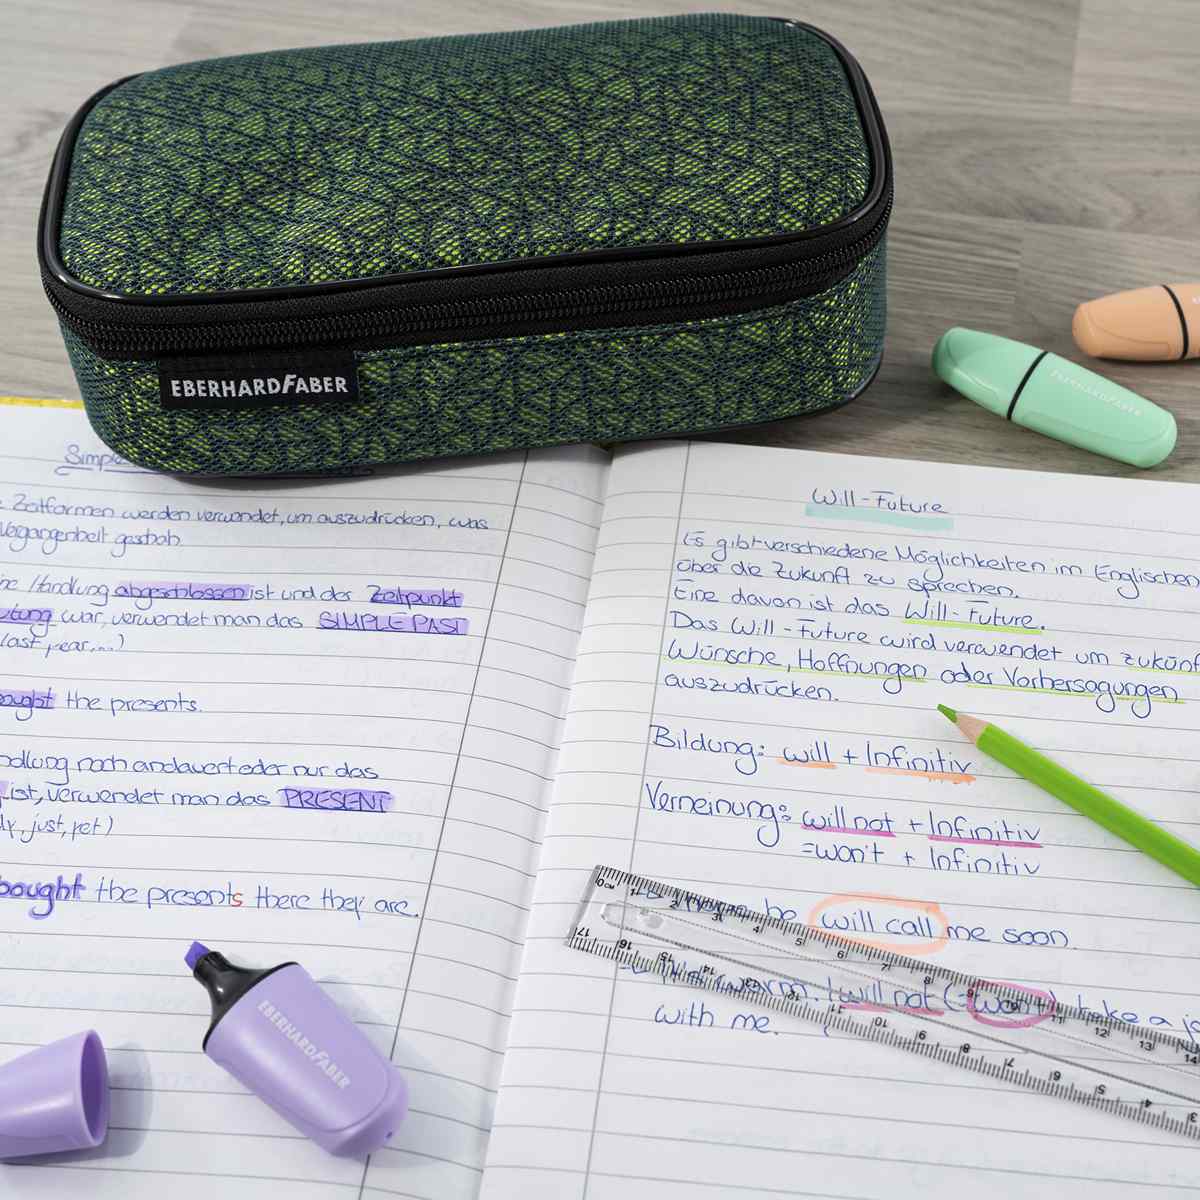 EBERHARDFABER
EBERHARDFABER
Simple
Zeitformen werden verwendet, um auszudrücken, was
Vergangenheit geschah.
Handlung abgeschlossen ist und der Zeitpunkt
war, verwendet man das SIMPLE PAST
last year...)
the presents.
noch andauert oder nur das
ist, verwendet man das PRESENT
just, yet)
bought the presents there they are.
EBERHARDFABER
Will-Future
Es gibt verschiedene Möglichkeiten im Englischen
über die Zukunft zu sprechen.
Eine davon ist das Will-Future.
Das Will-Future wird verwendet um zukünf
Wünsche, Hoffnungen oder Vorhersagungen
auszudrücken.
Bildung: will + Infinitiv
Verneinung: will not + Infinitiv
=won't + Infinitiv
be will call me soon.
warm. I will not (=won't) take a
with me.
0 CM 1 2 3 4 5 6 7 8 9 10 11 12 13 14
17 16 15 14 13 12 11 10 9 8 7 6 5 4 3